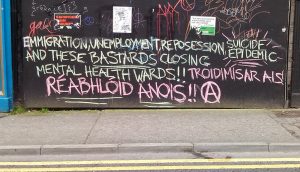 EMMIGRATION, UNEMPLOYMENT, REPOSESSION, SUICIDE EPIDEMIC
AND THESE BASTARDS CLOSING
MENTAL HEALTH WARDS!! TROIDIMIS AR AIS
RÉABHLÓID ANOIS!!